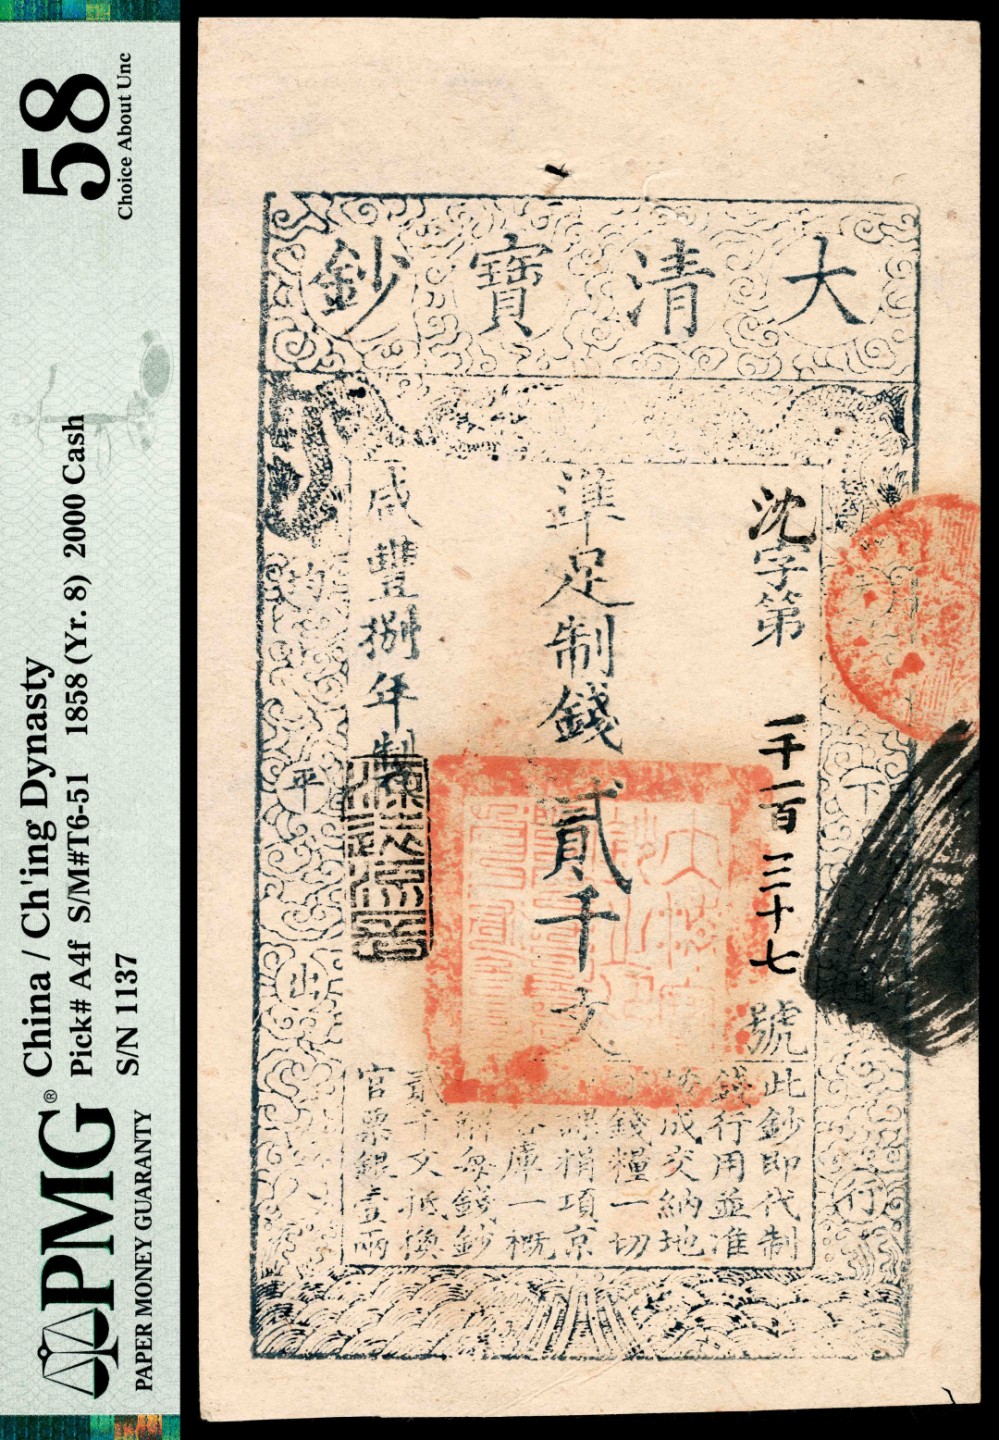 58
Choice About Unc
China / Ch'ing Dynasty
Pick# A4f S/M#T6-51 1858 (Yr. 8) 2000 Cash
S/N 1137
PMG®
PAPER MONEY GUARANTY
大清寶鈔
沈字第一千一百三十七號
準足制錢貳千文
咸豐捌年製
天下通行
均平出
此鈔即代制
錢行用並准
按成交納地
丁錢糧一切
課捐項京
庫一概
解每錢鈔
貳千文抵換
官票銀壹兩